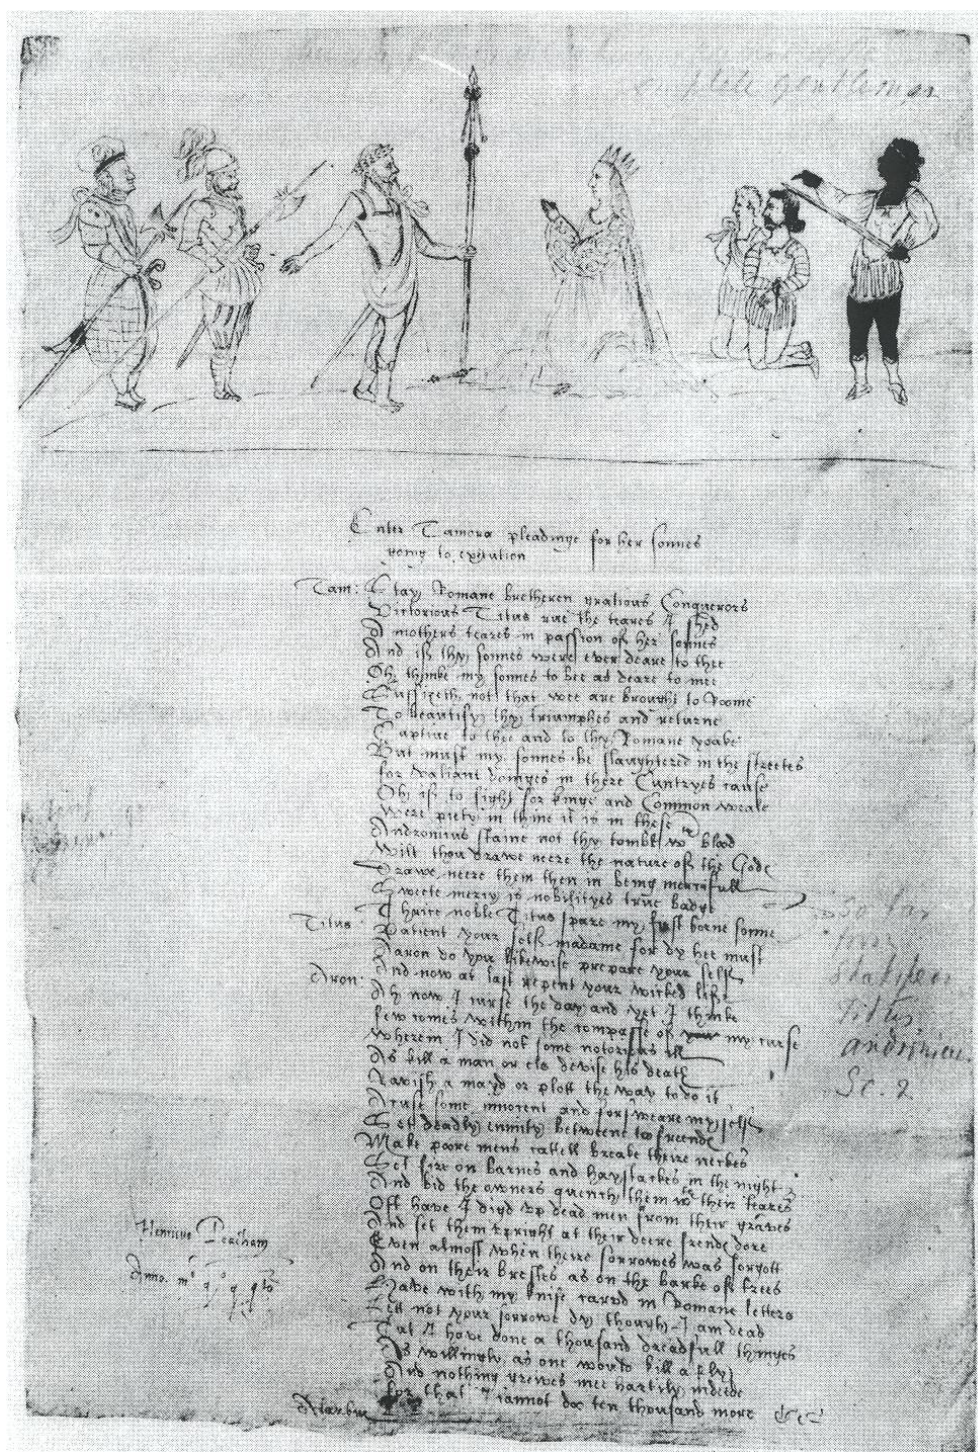 Enter Tamora pleadinge for her sonnes
going to execution
Tam: Stay Romane bretheren gratious Conquerors
Victorious Titus rue the teares I shed
A mothers teares in passion of her sonnes
And if thy sonnes were ever deare to thee
Oh thinke my sonnes to bee as deare to mee
Suffizeth not that wee are brought to Roome
To beautify thy triumphes and returne
Captive to thee and to thy Romane yoake
But must my sonnes be slaughtered in the streetes
for valiant doinges in there Cuntryes cause
Oh if to fight for kinge and Common weale
Were piety in thine it is in these
Andronicus staine not thy tombe wth blood
Wilt thou drawe neere the nature of the Gods
Drawe neere them then in being mercifull
Sweete mercy is nobilityes true badge
Thrice noble Titus spare my first borne sonne
Titus: Patient your self madame for dy hee must
Aaron do you likewise prepare your self
And now at last repent your wicked life
Aron: Ah now I curse the day and yet I thinke
few comes within the compasse of my curse
Wherein I did not some notorious ill
As kill a man or els devise his death
Ravish a mayd or plott the way to do it
Acuse some innocent and forsweare my self
Set deadly enmity betweene too freendes
Make poore mens cattell breake theire neckes
Set fire on barnes and haystackes in the night
And bid the owners quench them wth their teares
Oft have I digd vp dead men from their graves
And set them vpright at their deere frends dore
Even almost when theire sorrowes was forgott
And on their brestes as on the barke of trees
Have with my knife carvd in Romane letters
Lett not your sorrowe dy though I am dead
Tut I have done a thousand dreadfull thinges
As willingly as one would kill a fly
And nothing greives mee hartily indeede
for that I cannot doo ten thousand more &c
Alarbus
Henricus Peacham
Anno mo qo gqto
So far
from
Titus
Andronicus
Sc. 2
gentleman